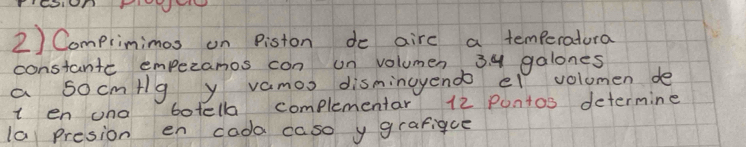 2) Comprimimos un Piston de aire a temperadura
constante empezamos con un volumen 3.4 galones
a 50 cm Hg y vamos disminuyendo el volumen de
1 en una botella complementar 12 Pontos determine
la presion en cada caso y grafique